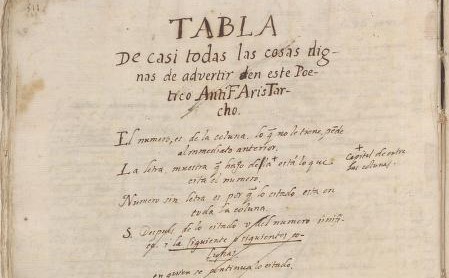 TABLA
De casi todas las cosas dig-
nas de advertir en este Poe-
tico AntiFArisTar-
cho.
El numero, es de la coluna, lo q̃ no le tiene, pide
al immediato anterior.
La letra, muestra q̃ bajo de la + está lo que
cita el numero.
+
Capital de entre
las colunas.
Numero sin letra es por q̃ lo citado esta en
toda la coluna.
S. Despues de lo citado del numero
la siguiente siguientes co-
lunas
en quien se continua lo citado.